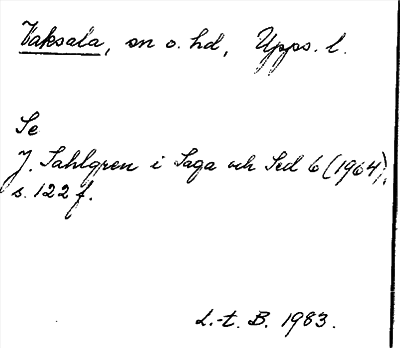 Vaksala, sn o. hd, Upps. l.
Se
J. Sahlgren i Saga och Sed 6 (1964),
s. 122 f.
L.-t. B. 1983.